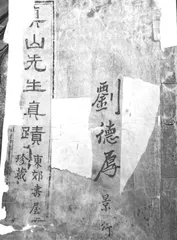 劉德厚 景行
真山先生真蹟
東郊書屋
珍藏